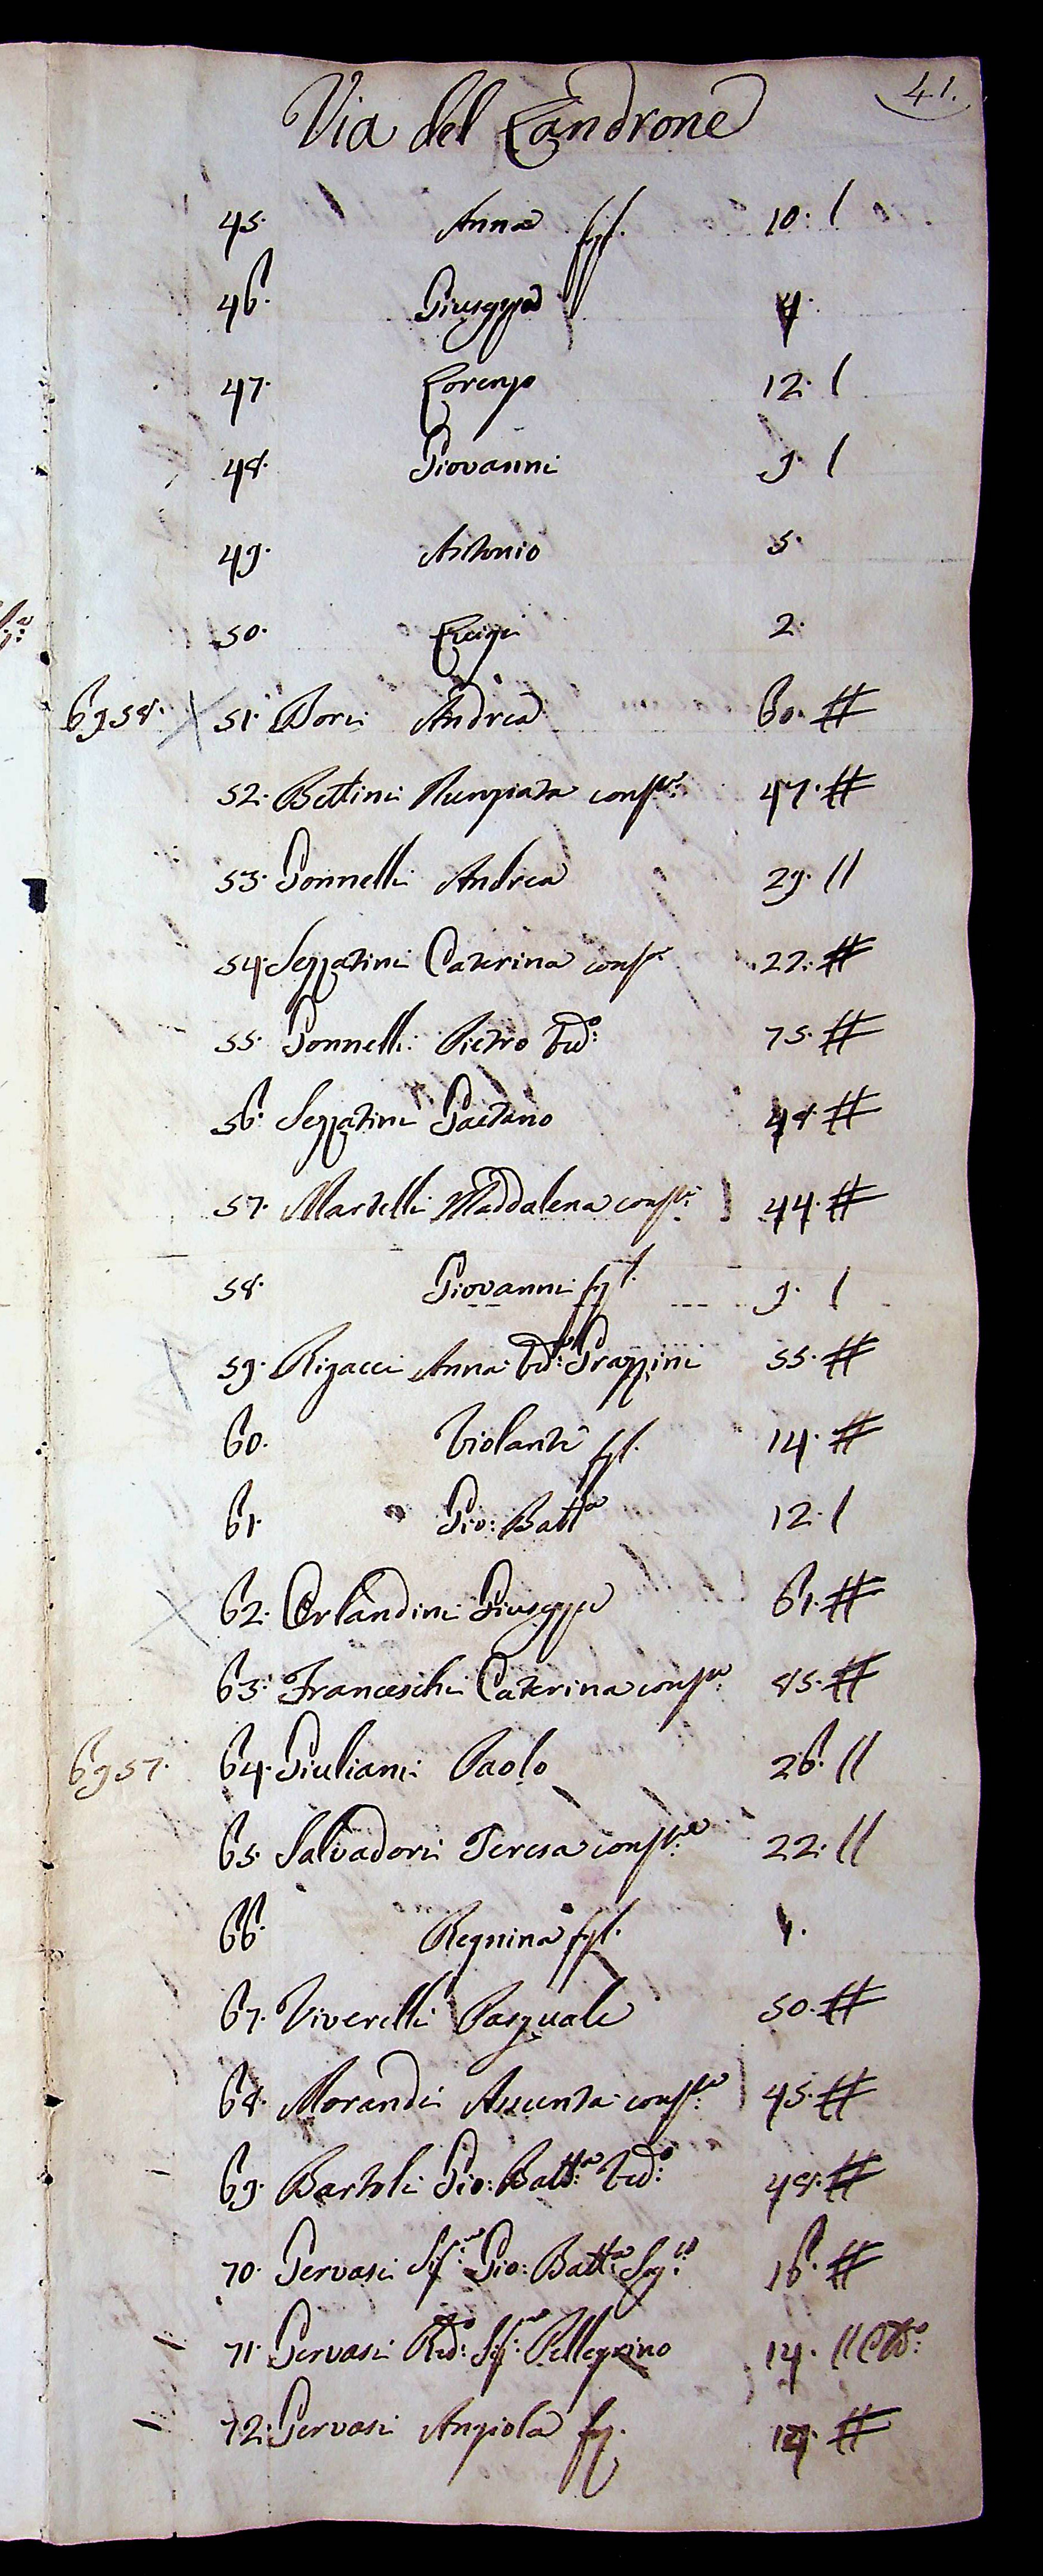 41.
Via del Landrone
45. Anna figl. 10. /
46. Giuseppa 4.
47. Lorenzo 12. /
48. Giovanni 9. /
49. Antonio 5.
50. Luigi 2.
6958. X 51. Bori Andrea 60. #
52. Bettini Nunziata conste: 47. #
53. Gonnelli Andrea 29. //
54. Sezzatini Caterina conste 22. #
55. Gonnelli Pietro Vedo: 75. #
56. Sezzatini Gaetano 48. #
57. Martelli Maddalena conste: 44. #
58. Giovanni figl. 9. /
59. Rigacci Anna Veda: Grazzini 55. #
60. Violante figl. 14. #
61. Gio: Batta 12. /
X 62. Orlandini Giuseppe 61. #
63. Franceschi Caterina conste 45. #
6957. 64. Giuliani Paolo 26. //
65. Salvadori Teresa conste: 22. //
66. Regnina figl. 4.
67. Viverelli Pasquale 50. #
68. Morandi Assunta conste: 45. #
69. Bartoli Gio: Batta: Vedo: 48. #
70. Gervasi Sigre: Gio: Batta: 16. #
71. Gervasi Redo: Sigre: Pellegrino 14. //
72. Gervasi Angiola fig. #